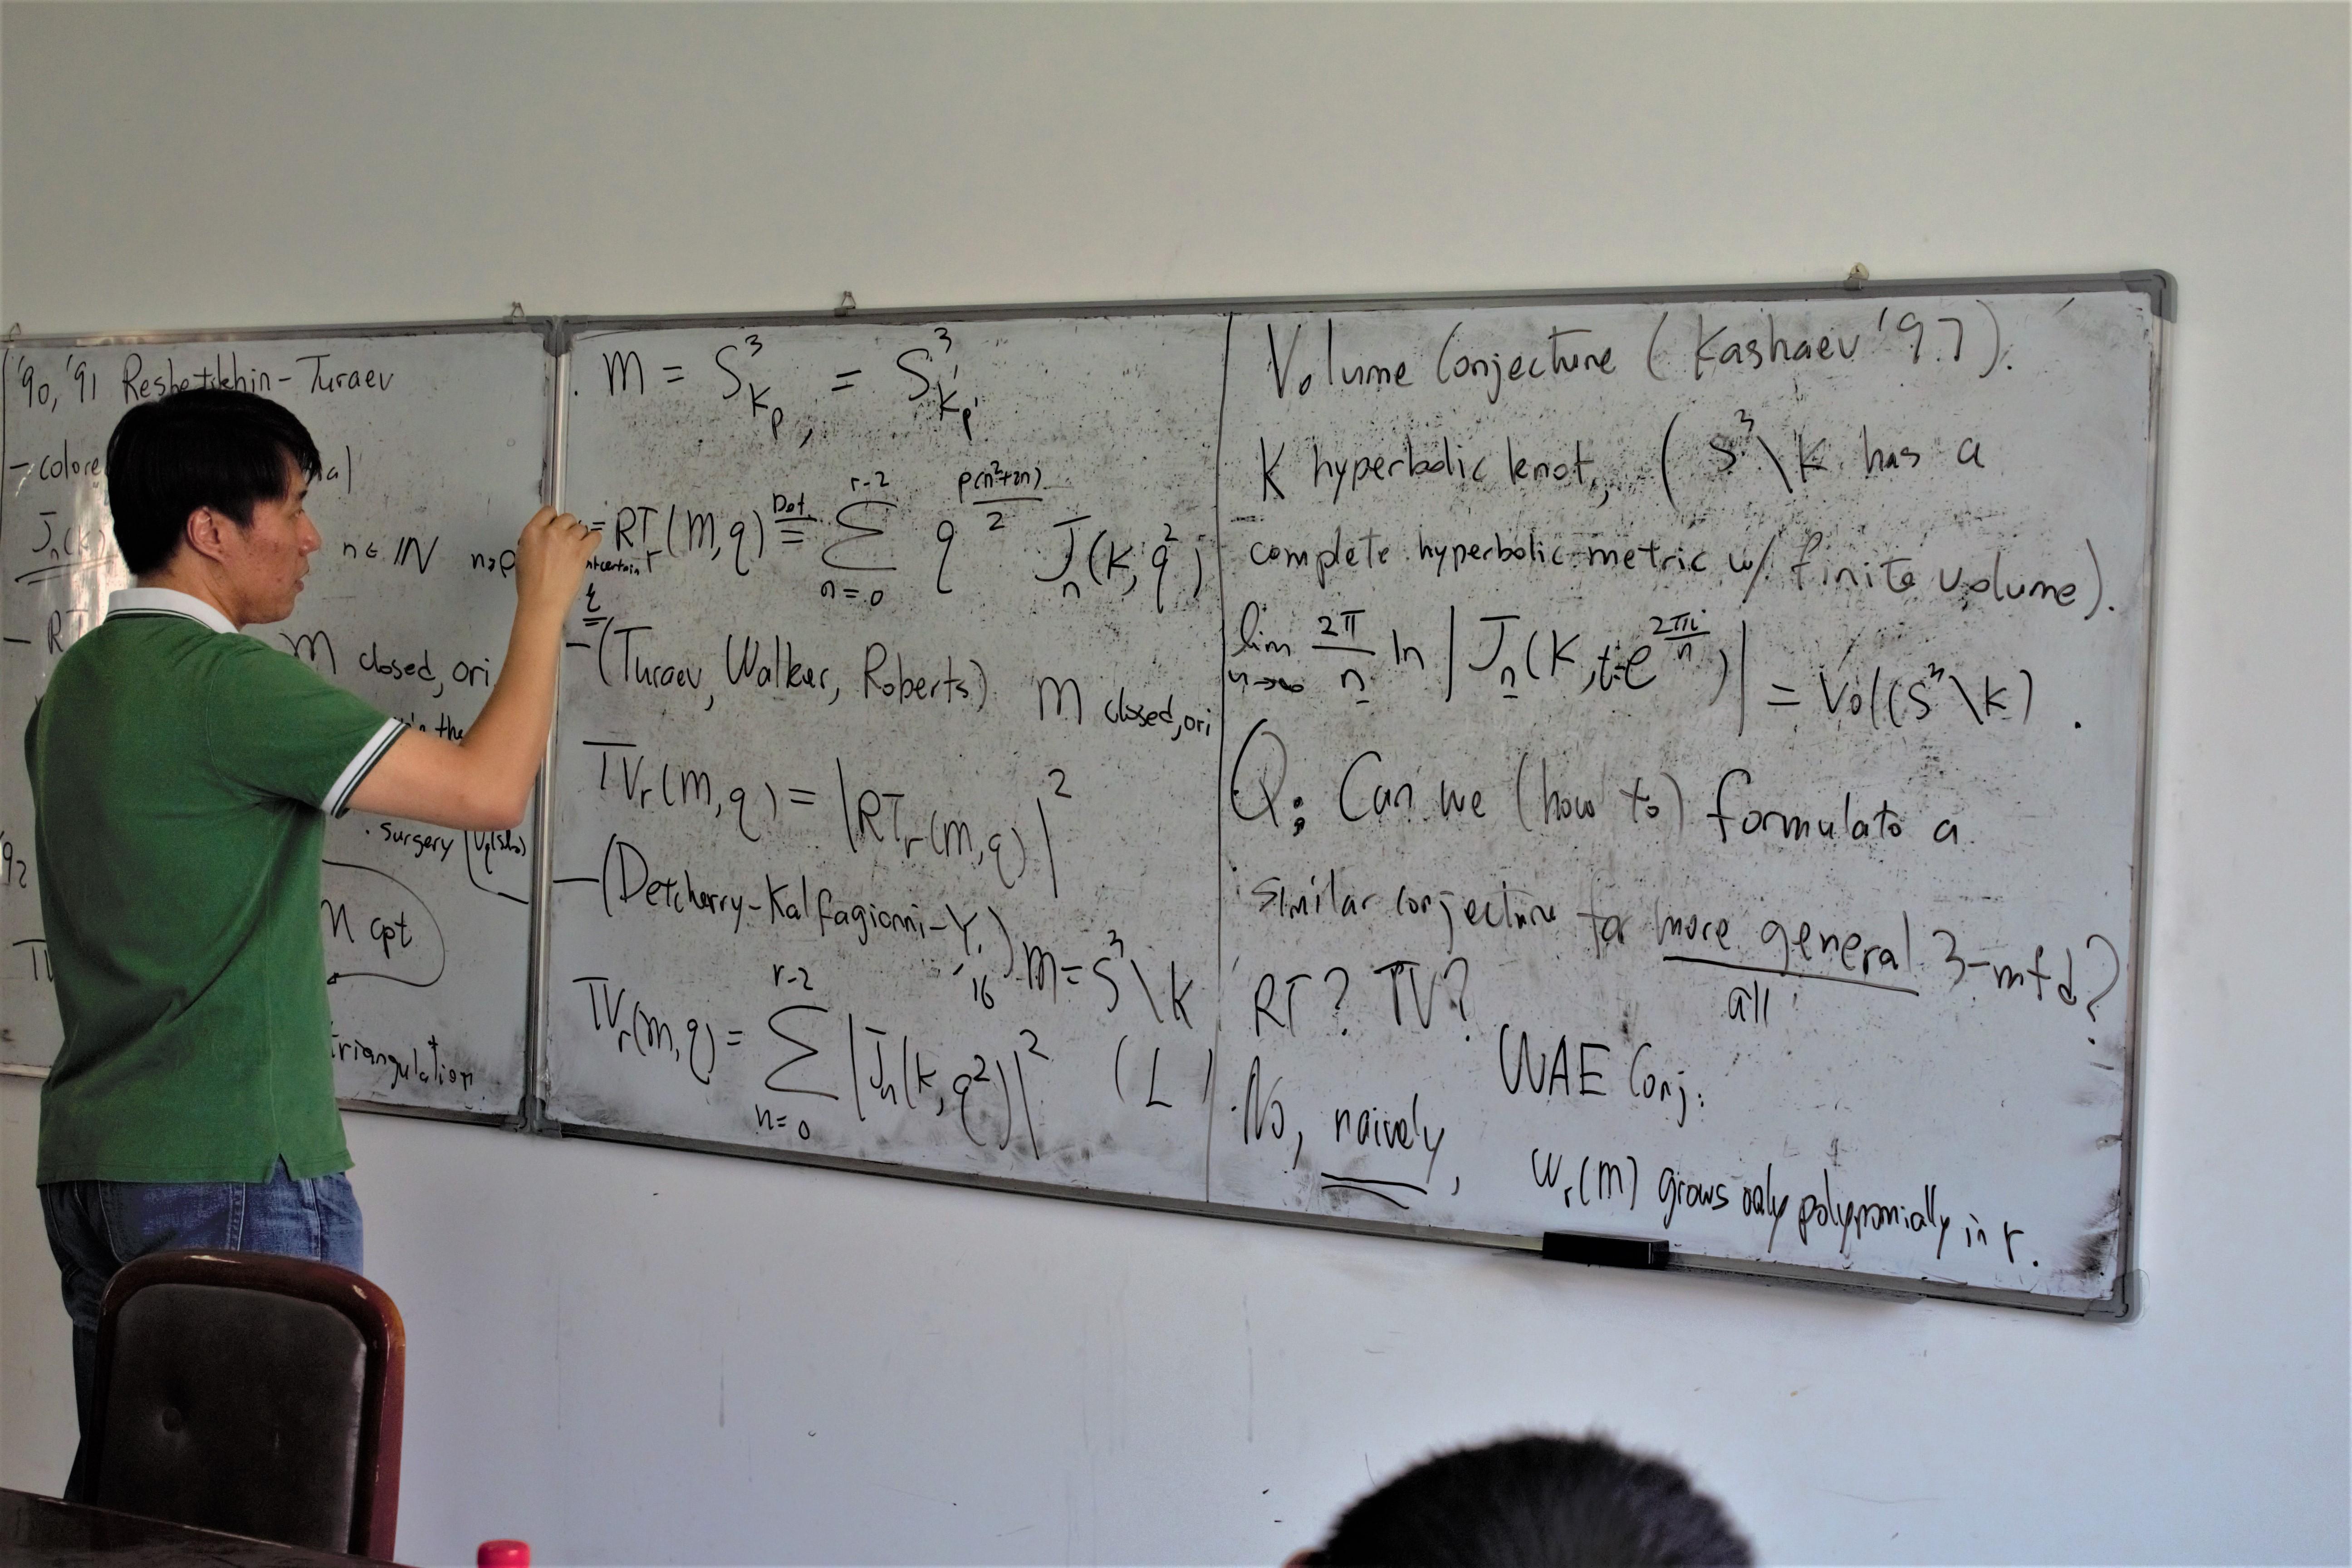 '90, '91 Reshetikhin-Turaev
- colore
J_n(K
n ∈ ℕ
- R
M closed, ori
in the
'92
. surgery
M cpt
TV
triangulation
. M = S³_{K_p} = S³_{K'_{p'}}
= RT_r(M,q) Def.= Σ_{n=0}^{r-2} q^{p(n²+2n)/2} J_n(K,q²)
- (Turaev, Walker, Roberts) M closed, ori
TV_r(M,q) = |RT_r(M,q)|²
- (Detcherry-Kalfagianni-Y. '16) M = S³\K
TV_r(M,q) = Σ_{n=0}^{r-2} |J_n(K,q²)|² (L)
Volume Conjecture (Kashaev '97).
K hyperbolic knot, (S³\K has a
complete hyperbolic metric w/ finite volume).
lim_{n→∞} 2π/n ln |J_n(K, t=e^{2πi/n})| = Vol(S³\K).
Q: Can we (how to) formulate a
similar conjecture for more general 3-mfd?
all
RT? TV?
WAE Conj:
No, naively,
W_r(M) grows only polynomially in r.